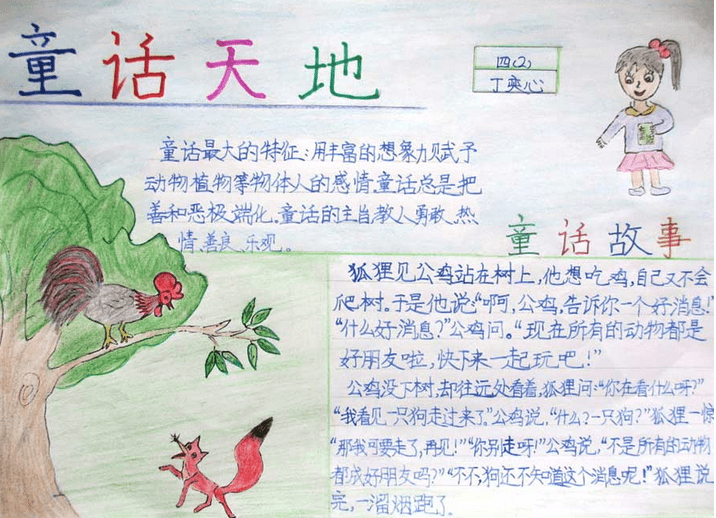 童话天地
四(2)
丁奕心
童话最大的特征:用丰富的想象力赋予
动物植物等物体人的感情.童话总是把
善和恶极端化.童话的主旨教人勇敢、热
情、善良、乐观。
童话故事
狐狸见公鸡站在树上,他想吃鸡,自己又不会
爬树。于是他说:“啊,公鸡,告诉你一个好消息!”
“什么好消息?”公鸡问。“现在所有的动物都是
好朋友啦,快下来一起玩吧!”
公鸡没下树,却往远处看着,狐狸问:“你在看什么呀?”
“我看见一只狗走过来了。”公鸡说,“什么?一只狗?”狐狸一惊
“那我可要走了,再见!”“你别走呀!”公鸡说,“不是所有的动物
都成好朋友吗?”“不不,狗还不知道这个消息呢!”狐狸说
完,一溜烟跑了。